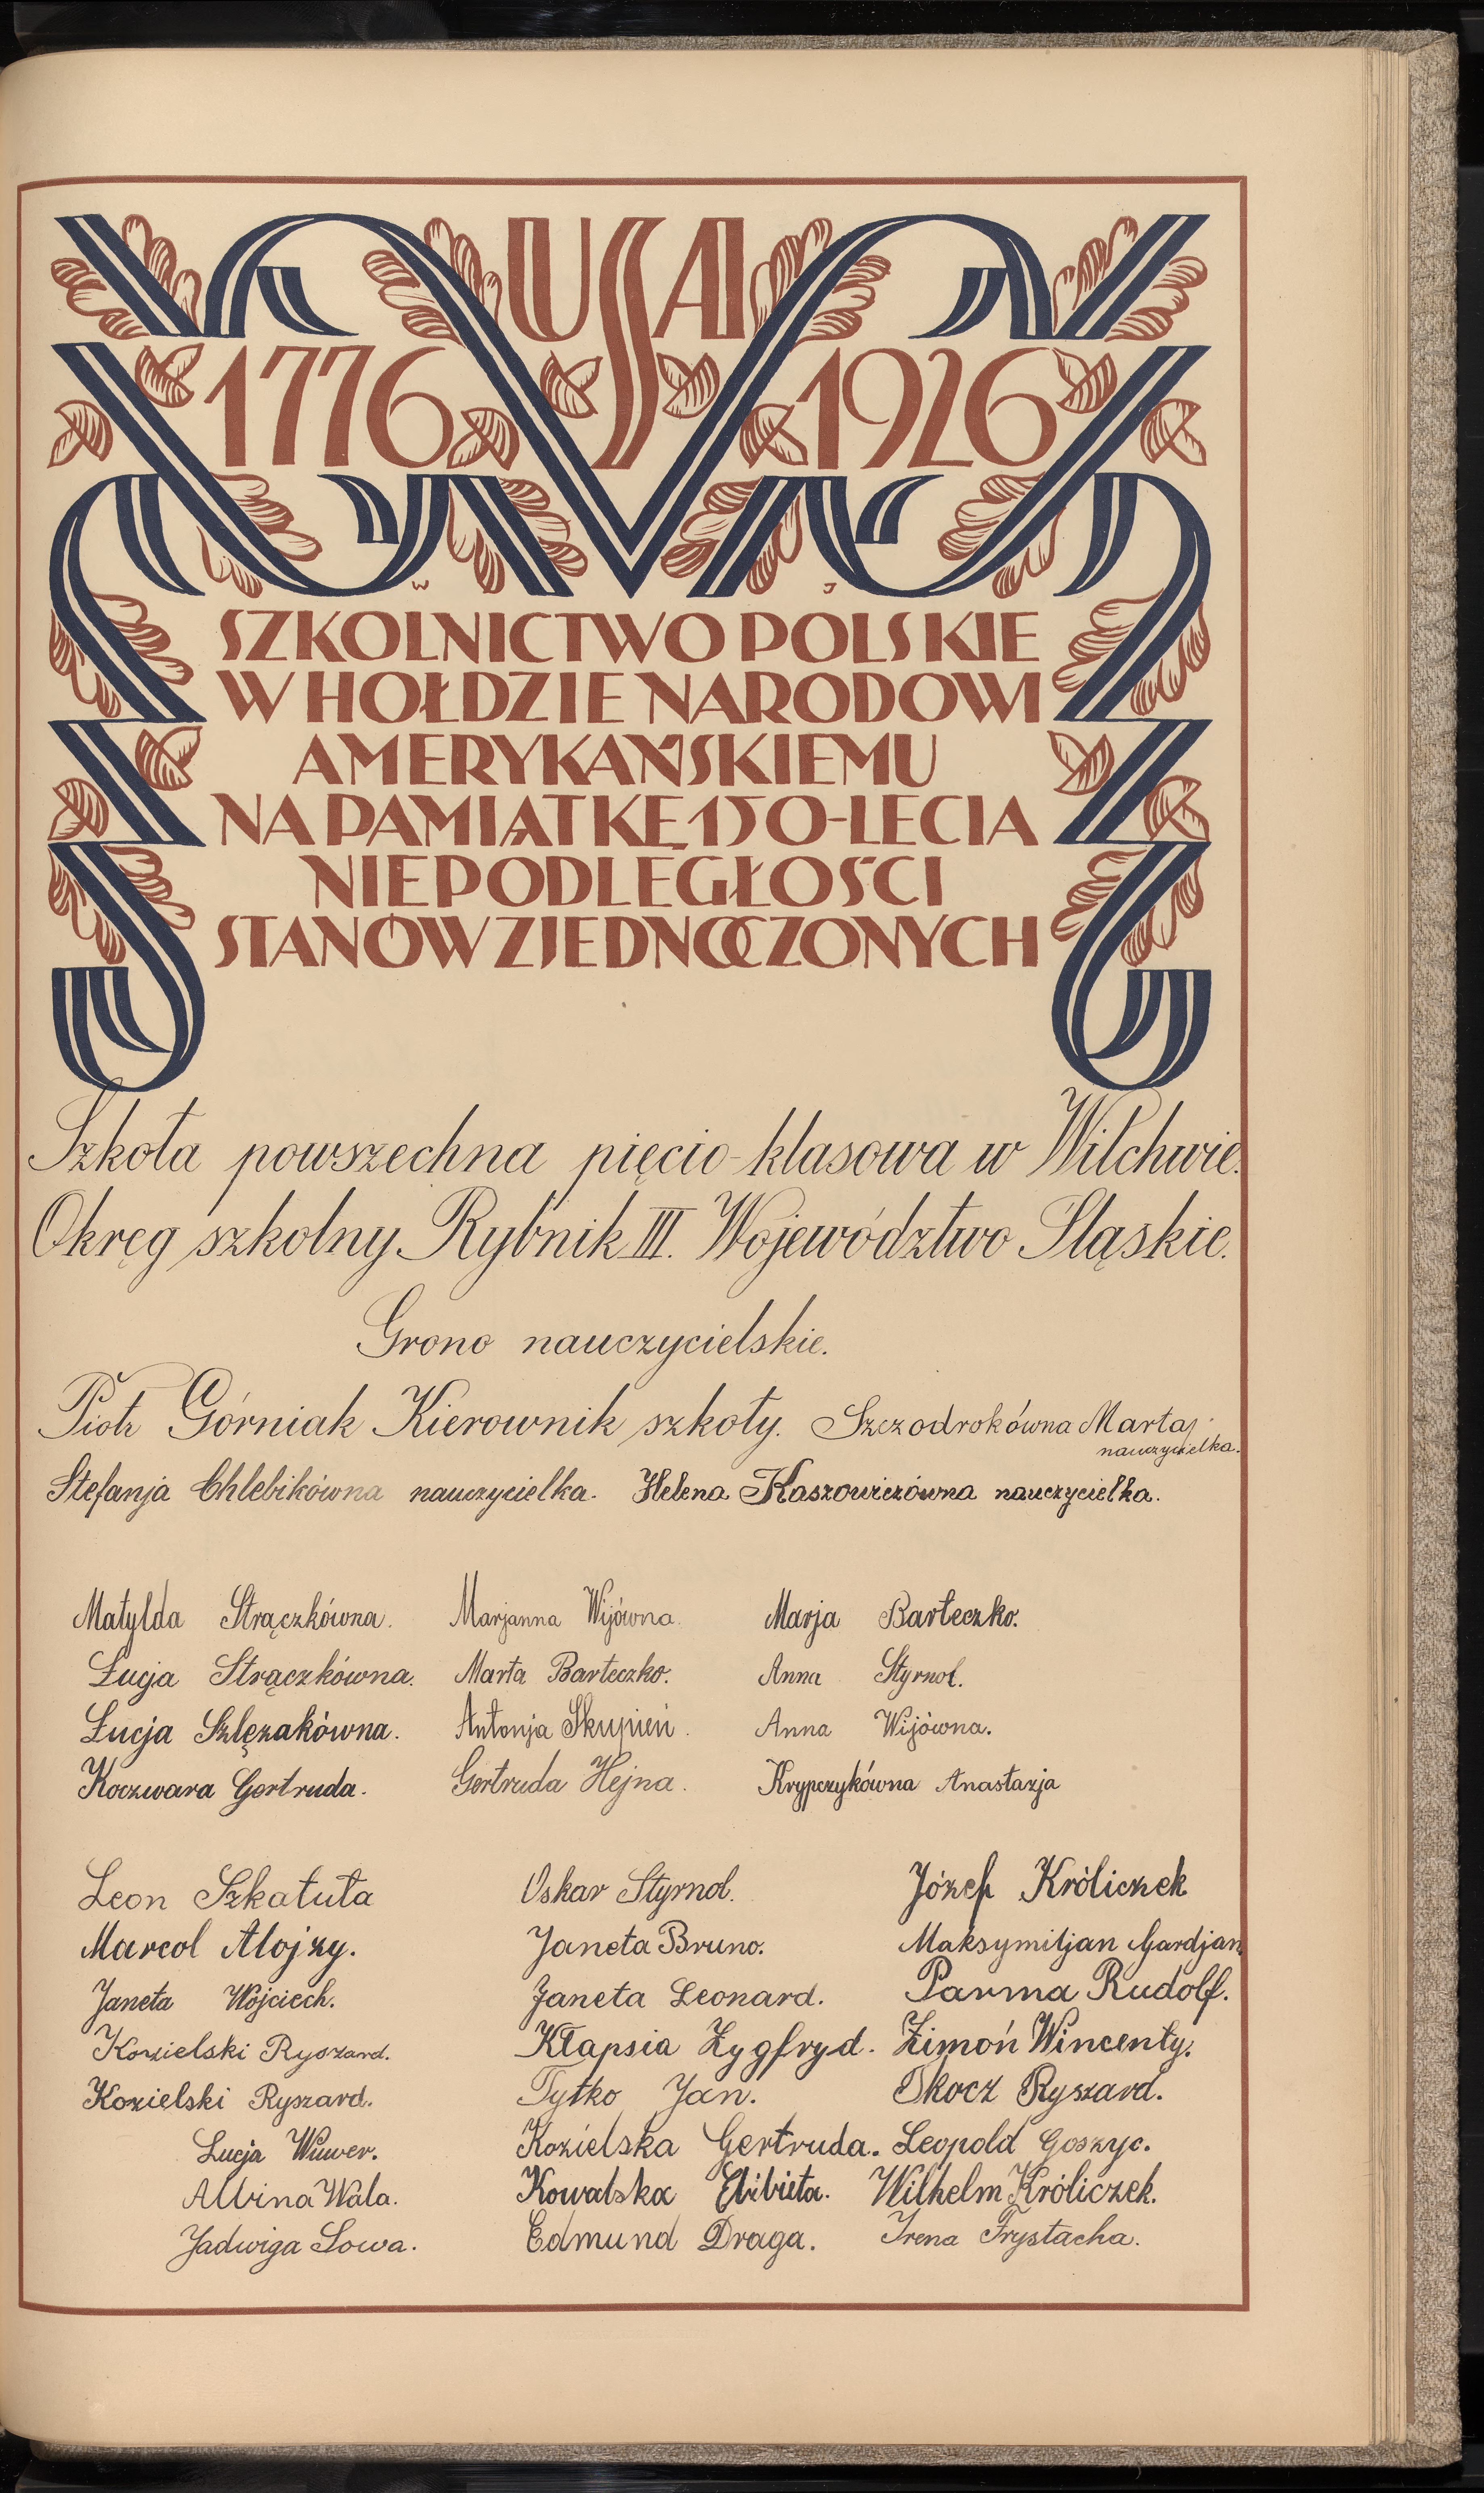 USA
1776 1926
W J
SZKOLNICTWO POLSKIE
W HOŁDZIE NARODOWI
AMERYKAŃSKIEMU
NA PAMIĄTKĘ 150-LECIA
NIEPODLEGŁOŚCI
STANÓW ZJEDNOCZONYCH
Szkoła powszechna pięcio-klasowa w Wilchwie.
Okręg szkolny Rybnik III. Województwo Śląskie.
Grono nauczycielskie.
Piotr Górniak Kierownik szkoły. Szczodrokówna Marta
nauczycielka.
Stefanja Chlebikówna nauczycielka. Helena Kaszowiczówna nauczycielka.
Matylda Strączkówna. Marjanna Wijówna. Marja Barteczko.
Łucja Strączkówna. Marta Barteczko. Anna Styrnol.
Łucja Szlęzakówna. Antonja Skupień. Anna Wijówna.
Koczwara Gertruda. Gertruda Hejna. Krypczykówna Anastazja
Leon Szkatuła Oskar Styrnol. Józef Króliczek
Marcol Alojzy. Janeta Bruno. Maksymiljan Gardjan.
Janeta Wojciech. Janeta Leonard. Parma Rudolf.
Kozielski Ryszard. Kłapsia Zygfryd. Zimoń Wincenty.
Kozielski Ryszard. Tytko Jan. Skocz Ryszard.
Łucja Wuwer. Kozielska Gertruda. Leopold Goszyc.
Albina Wala. Kowalska Elżbieta. Wilhelm Króliczek.
Jadwiga Sowa. Edmund Draga. Irena Frystacka.